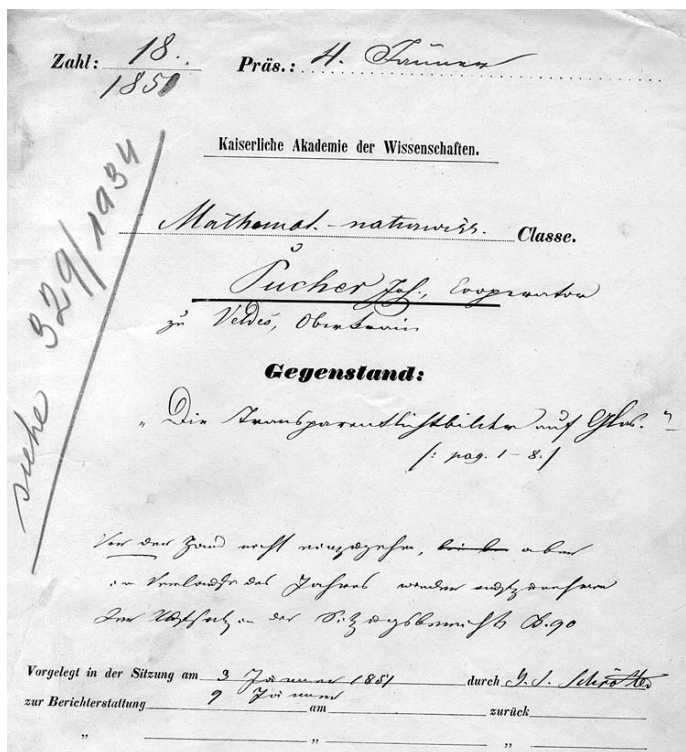 Zahl: 18. Präs.: 4. Jänner
1851
Kaiserliche Akademie der Wissenschaften.
Mathemat.-naturwiss. Classe.
Pucher Joh., Cooperator
zu Veldes, Oberkrain
Gegenstand:
"Die Transparentlichtbilder auf Glas."
/: pag. 1-8. /
siehe 329/1934
Vor der Hand nicht einzugehen, aber
im Verlaufe des Jahres wieder
der Sitzungsberichte
Vorgelegt in der Sitzung am 3 Jänner 1851 durch Schrötter
zur Berichterstattung 9 Jänner am zurück
" " "